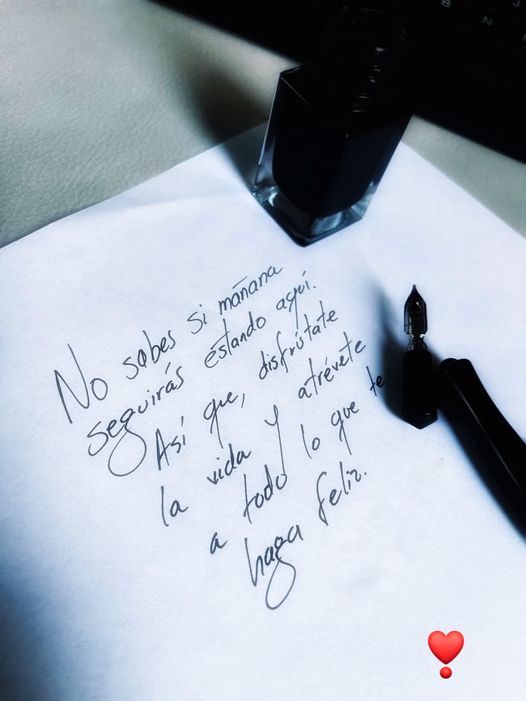 No sabes si mañana
seguirás estando aquí.
Así que, disfrútate
la vida y atrévete
a todo lo que te
haga feliz.